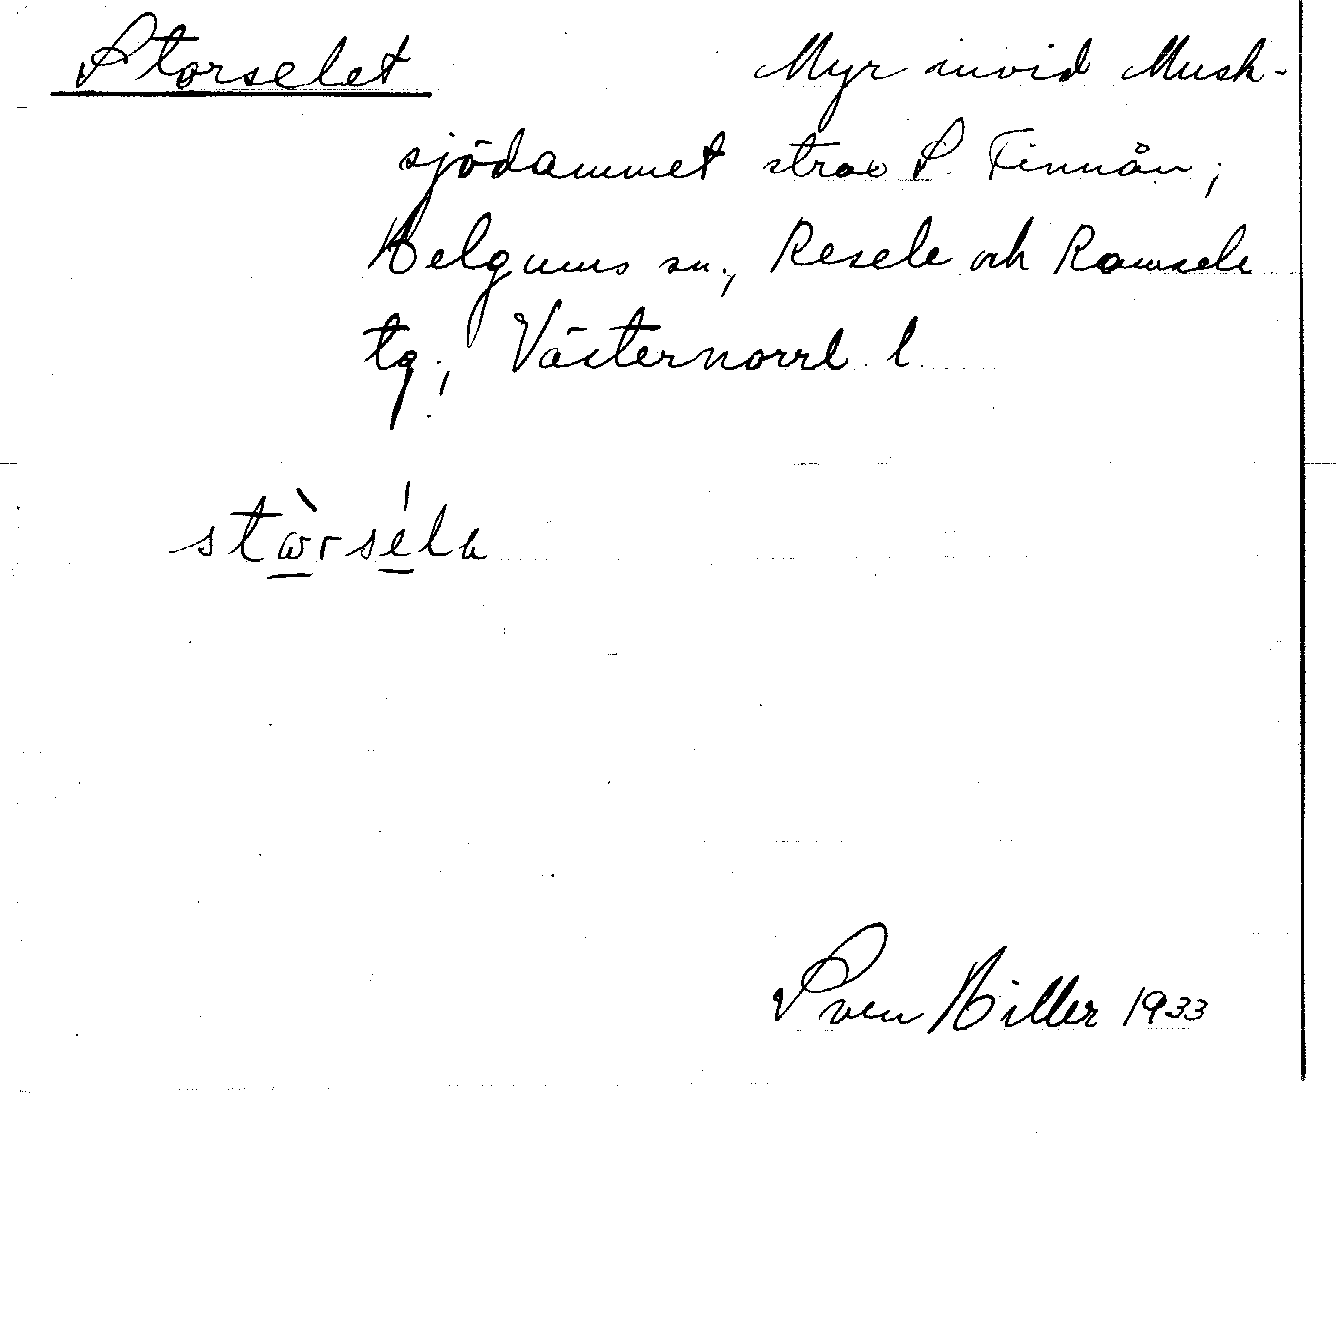 Storselet Myr invid Musk-
sjödammet strax S Finnån,
Helgums sn., Resele och Ramsele
tg., Västernorrl. l
Sven Hiller 1933